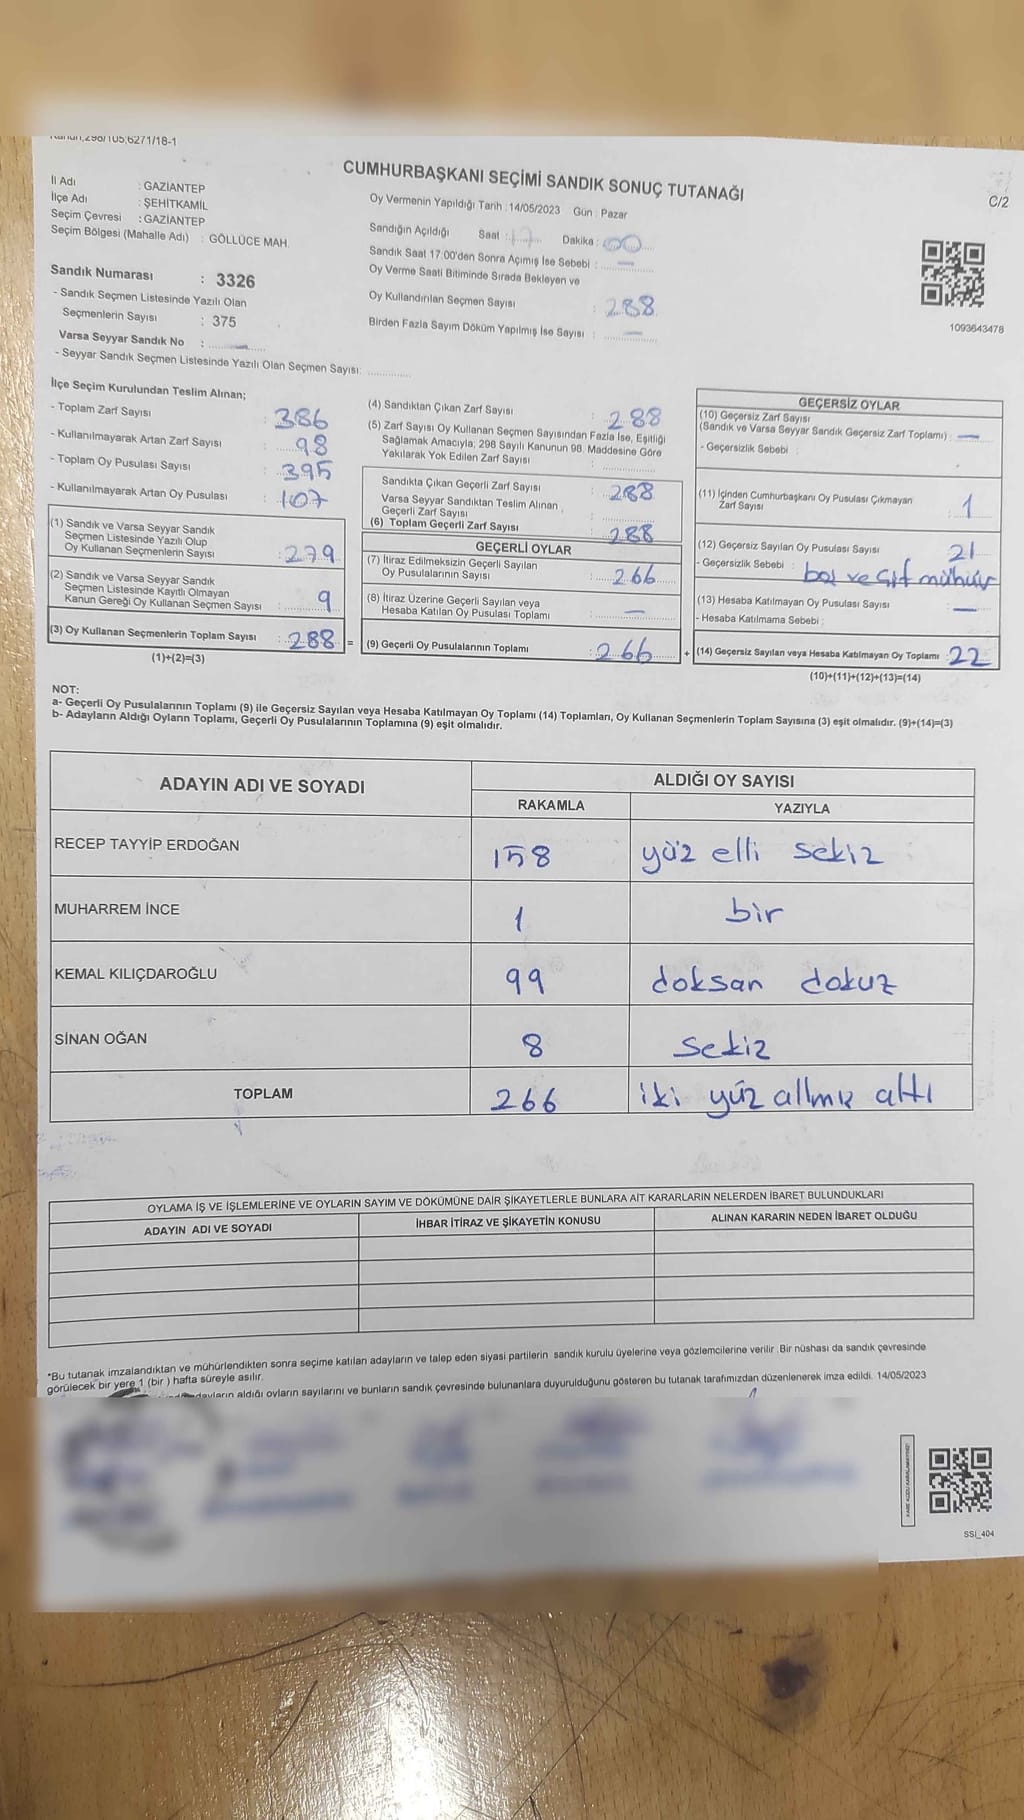 Kanun;298/105;6271/18-1
CUMHURBAŞKANI SEÇİMİ SANDIK SONUÇ TUTANAĞI
C/2
İl Adı : GAZİANTEP
İlçe Adı : ŞEHİTKAMİL
Seçim Çevresi : GAZİANTEP
Seçim Bölgesi (Mahalle Adı) : GÖLLÜCE MAH.
Sandık Numarası : 3326
- Sandık Seçmen Listesinde Yazılı Olan
Seçmenlerin Sayısı : 375
Varsa Seyyar Sandık No : —
- Seyyar Sandık Seçmen Listesinde Yazılı Olan Seçmen Sayısı:
Oy Vermenin Yapıldığı Tarih : 14/05/2023 Gün : Pazar
Sandığın Açıldığı Saat : 17 Dakika : 00
Sandık Saat 17:00'den Sonra Açımış İse Sebebi : —
Oy Verme Saati Bitiminde Sırada Bekleyen ve
Oy Kullandırılan Seçmen Sayısı : 288
Birden Fazla Sayım Döküm Yapılmış İse Sayısı : —
1093643478
İlçe Seçim Kurulundan Teslim Alınan;
- Toplam Zarf Sayısı : 386
- Kullanılmayarak Artan Zarf Sayısı : 98
- Toplam Oy Pusulası Sayısı : 395
- Kullanılmayarak Artan Oy Pusulası : 107
(1) Sandık ve Varsa Seyyar Sandık
Seçmen Listesinde Yazılı Olup
Oy Kullanan Seçmenlerin Sayısı : 279
(2) Sandık ve Varsa Seyyar Sandık
Seçmen Listesinde Kayıtlı Olmayan
Kanun Gereği Oy Kullanan Seçmen Sayısı : 9
(3) Oy Kullanan Seçmenlerin Toplam Sayısı : 288 =
(1)+(2)=(3)
(4) Sandıktan Çıkan Zarf Sayısı : 288
(5) Zarf Sayısı Oy Kullanan Seçmen Sayısından Fazla İse, Eşitliği
Sağlamak Amacıyla; 298 Sayılı Kanunun 98. Maddesine Göre
Yakılarak Yok Edilen Zarf Sayısı :
Sandıkta Çıkan Geçerli Zarf Sayısı : 288
Varsa Seyyar Sandıktan Teslim Alınan
Geçerli Zarf Sayısı :
(6) Toplam Geçerli Zarf Sayısı : 288
GEÇERLİ OYLAR
(7) İtiraz Edilmeksizin Geçerli Sayılan
Oy Pusulalarının Sayısı : 266
(8) İtiraz Üzerine Geçerli Sayılan veya
Hesaba Katılan Oy Pusulası Toplamı : —
(9) Geçerli Oy Pusulalarının Toplamı : 266 +
GEÇERSİZ OYLAR
(10) Geçersiz Zarf Sayısı
(Sandık ve Varsa Seyyar Sandık Geçersiz Zarf Toplamı) : —
- Geçersizlik Sebebi :
(11) İçinden Cumhurbaşkanı Oy Pusulası Çıkmayan
Zarf Sayısı : 1
(12) Geçersiz Sayılan Oy Pusulası Sayısı : 21
- Geçersizlik Sebebi : boş ve çift mühür
(13) Hesaba Katılmayan Oy Pusulası Sayısı : —
- Hesaba Katılmama Sebebi :
(14) Geçersiz Sayılan veya Hesaba Katılmayan Oy Toplamı : 22
(10)+(11)+(12)+(13)=(14)
NOT:
a- Geçerli Oy Pusulalarının Toplamı (9) ile Geçersiz Sayılan veya Hesaba Katılmayan Oy Toplamı (14) Toplamları, Oy Kullanan Seçmenlerin Toplam Sayısına (3) eşit olmalıdır. (9)+(14)=(3)
b- Adayların Aldığı Oyların Toplamı, Geçerli Oy Pusulalarının Toplamına (9) eşit olmalıdır.
ADAYIN ADI VE SOYADI ALDIĞI OY SAYISI
RAKAMLA YAZIYLA
RECEP TAYYİP ERDOĞAN 158 yüz elli sekiz
MUHARREM İNCE 1 bir
KEMAL KILIÇDAROĞLU 99 doksan dokuz
SİNAN OĞAN 8 sekiz
TOPLAM 266 iki yüz altmış altı
OYLAMA İŞ VE İŞLEMLERİNE VE OYLARIN SAYIM VE DÖKÜMÜNE DAİR ŞİKAYETLERLE BUNLARA AİT KARARLARIN NELERDEN İBARET BULUNDUKLARI
ADAYIN ADI VE SOYADI İHBAR İTİRAZ VE ŞİKAYETİN KONUSU ALINAN KARARIN NEDEN İBARET OLDUĞU
*Bu tutanak imzalandıktan ve mühürlendikten sonra seçime katılan adayların ve talep eden siyasi partilerin sandık kurulu üyelerine veya gözlemcilerine verilir .Bir nüshası da sandık çevresinde
görülecek bir yere 1 (bir ) hafta süreyle asılır.
adayların aldığı oyların sayılarını ve bunların sandık çevresinde bulunanlara duyurulduğunu gösteren bu tutanak tarafımızdan düzenlenerek imza edildi. 14/05/2023
SSI_404